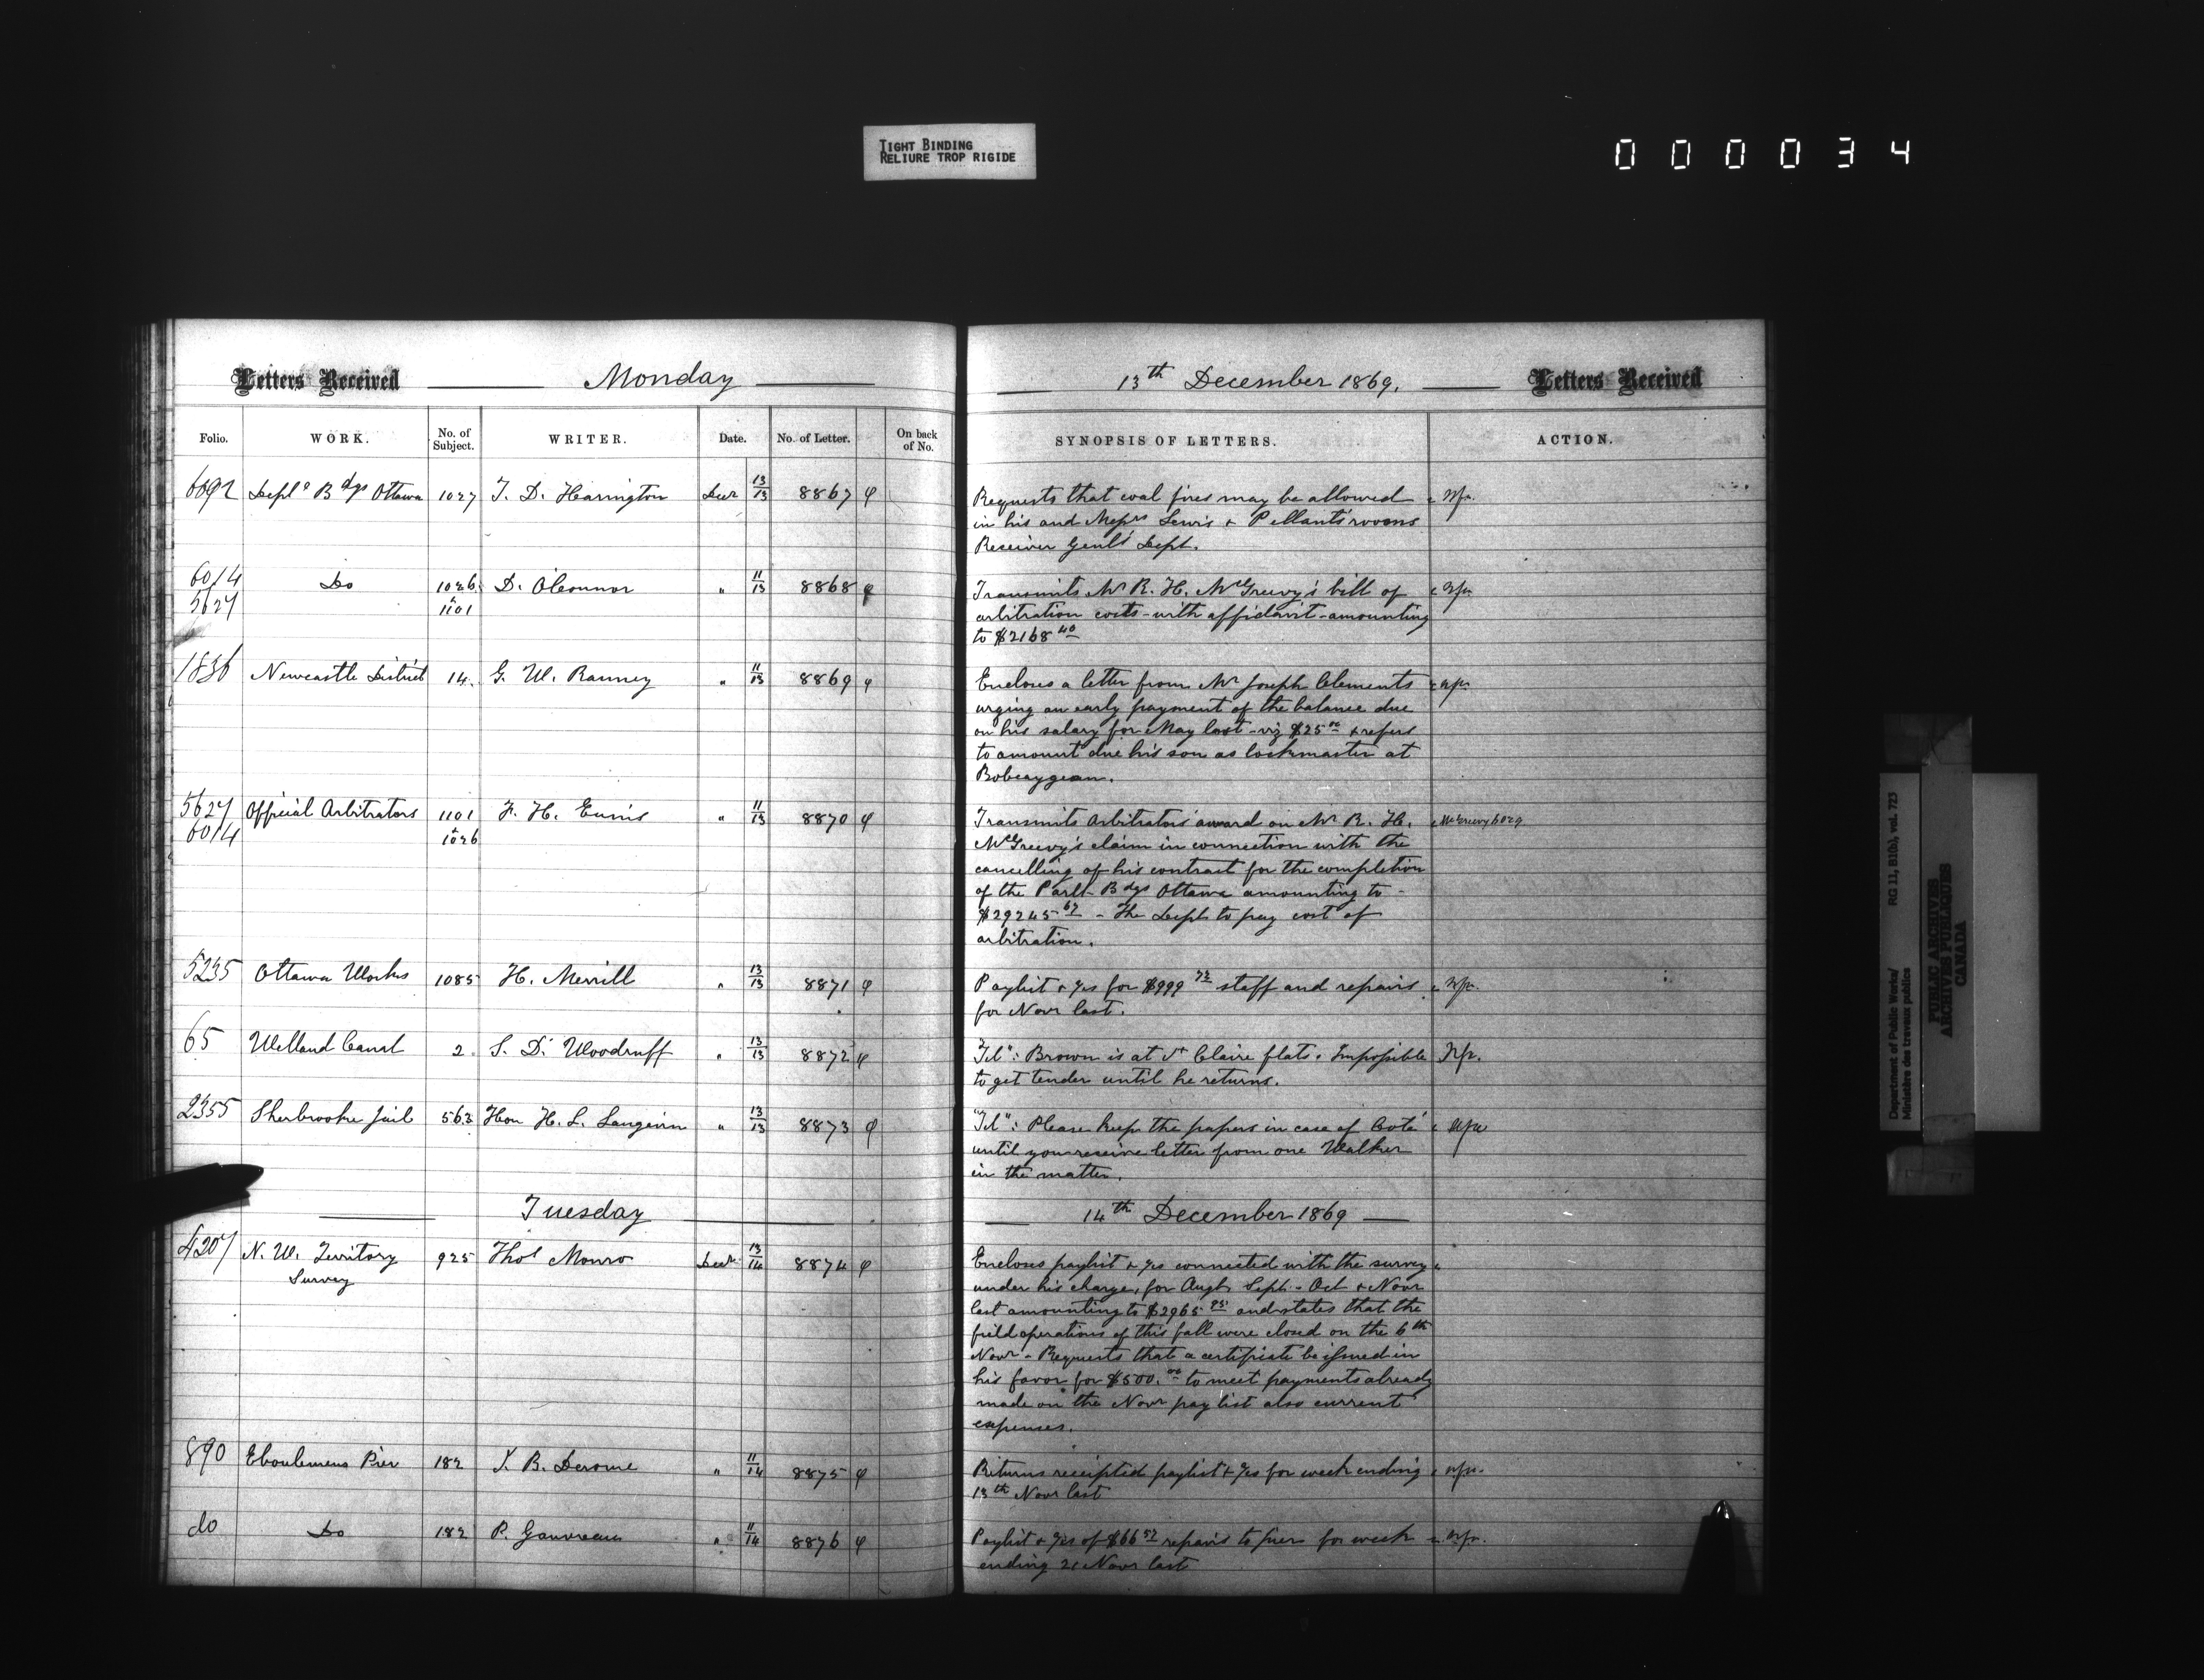 TIGHT BINDING
RELIURE TROP RIGIDE
000034
Letters Received Monday 13th December 1869. Letters Received
Folio. WORK. No. of Subject. WRITER. Date. No. of Letter. On back of No. SYNOPSIS OF LETTERS. ACTION.
6692 Deptl Bdgs Ottawa 1027 T. D. Harington Decr 13/13 8867 Requests that coal fires may be allowed
in his and Messrs Lewis & Pellants rooms
Receiver Genls Dept.
6014 Do 1026 D. O'Connor " 11/13 8868 Transmits Mr R. H. McGreevy's bill of
5627 & 1101 arbitration costs - with affidavit - amounting
to $2168 40
1836 Newcastle District 14. G. W. Ranney " 11/13 8869 Encloses a letter from Mr Joseph Clements
urging an early payment of the balance due
on his salary for May last - viz $25 00 & refers
to amount due his son as lockmaster at
Bobcaygean.
5627 Official Arbitrators 1101 F. H. Ennis " 11/13 8870 Transmits Arbitrators award on Mr R. H. McGreevy 6029
6014 & 1026 McGreevy's claim in connection with the
cancelling of his contract for the completion
of the Parlt Bdgs Ottawa amounting to -
$29245 67 - The Dept to pay cost of
arbitration.
5235 Ottawa Works 1085 H. Merrill " 13/13 8871 Paylist & for $999 staff and repairs
for Novr last.
65 Welland Canal 2 S. D. Woodruff " 13/13 8872 "Tel": Brown is at St Claire flats. Impossible
to get tender until he returns.
2355 Sherbrooke Jail 563 Hon H. L. Langevin " 13/13 8873 "Tel": Please keep the papers in case of Coté
until you receive letter from one Walker
in the matter.
Tuesday 14th December 1869
4207 N. W. Territory 925 Thos Monro Decr 13/14 8874 Encloses paylist & connected with the survey
Survey under his charge, for Augt, Sept - Oct & Novr
last amounting to $2965 95 and states that the
field operations of this fall were closed on the 6th
Novr - Requests that a certificate be issued in
his favor for $500.00 to meet payments already
made on the Novr pay list also current
expenses.
890 Eboulemens Pier 182 J. B. Derome " 11/14 8875 Returns receipted paylist & for week ending
13th Novr last
do Do 182 P. Gauvreau " 11/14 8876 Paylist & of $66 57 repairs to pier for week
ending 21 Novr last
Department of Public Works/ RG 11, B1(b), vol. 723
Ministère des travaux publics
PUBLIC ARCHIVES
ARCHIVES PUBLIQUES
CANADA